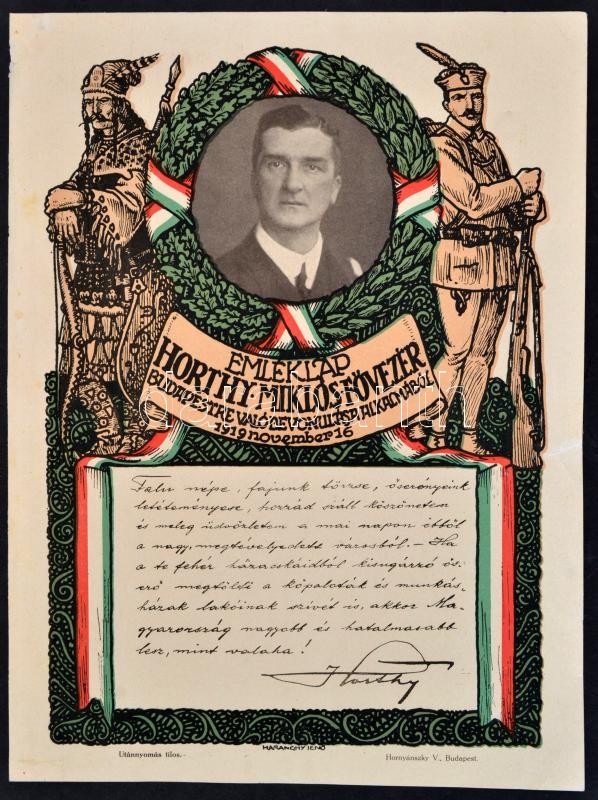 EMLÉKLAP
HORTHY MIKLÓS FŐVEZÉR
BUDAPESTRE VALÓ BEVONULÁSA ALKALMÁBÓL
1919 november 16
Falu népe, fajunk törzse, őserényeink
letéteményese, hozzád száll köszönetem
és meleg üdvözletem a mai napon ebből
a nagy, megtévelyedett városból. — Ha
a te fehér házacskáidból kisugárzó ős-
erő megtölti a kőpaloták és munkás-
házak lakóinak szívét is, akkor Ma-
gyarország nagyobb és hatalmasabb
lesz, mint valaha!
Horthy
HARANGHY JENŐ
Utánnyomás tilos.-
Hornyánszky V., Budapest.